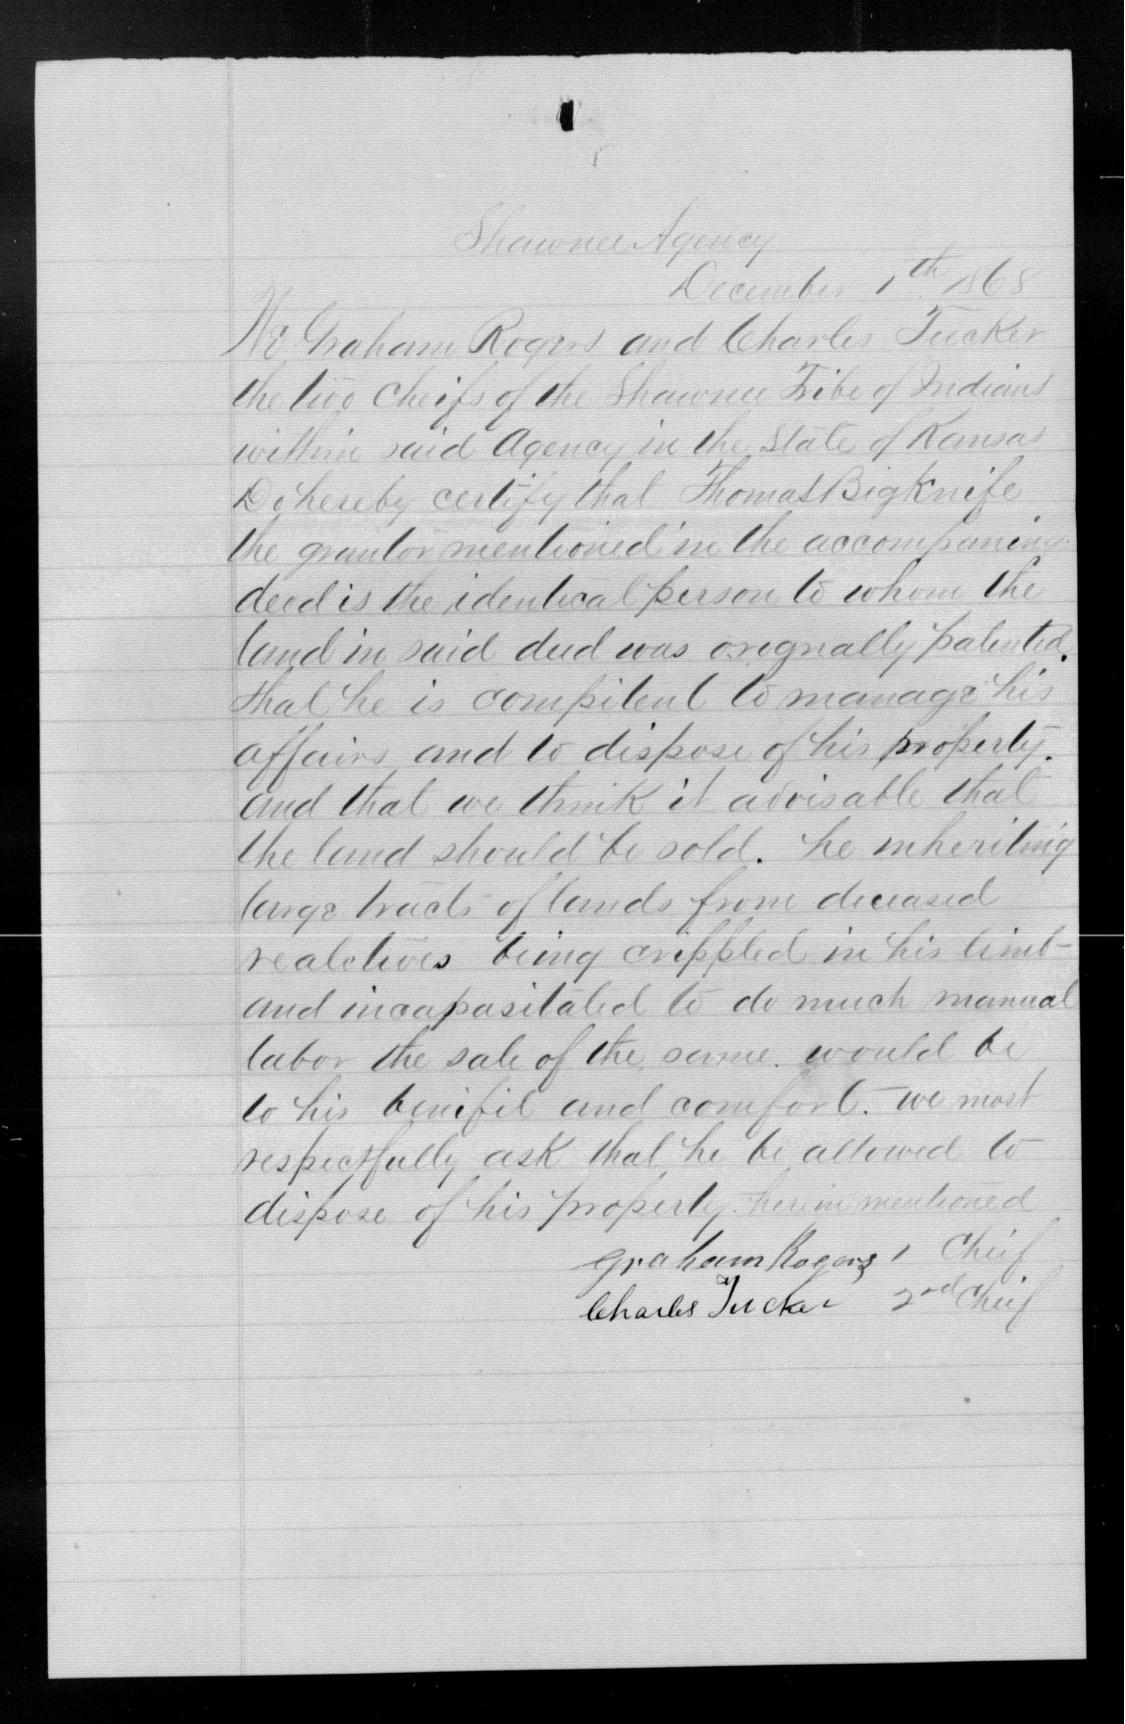 Shawnee Agency
December 1th 1868
We Graham Rogers and Charles Tucker
the two cheifs of the Shawnee Tribe of Indians
within said Agency in the State of Kansas
Do hereby certify that Thomas Bigknife
the grantor mentioned in the accompaning
deed is the identical person to whom the
land in said deed was oregnally patented.
that he is compitent to manage his
affairs and to dispose of his property.
and that we think it advisable that
the land should be sold. he inheriting
large tracts of lands from deceased
realetives being crippled in his limb
and incapasitated to do much manual
labor the sale of the same. would be
to his benifit and comfort. we most
respectfully ask that he be allowed to
dispose of his property. herein mentioned
Graham Rogers 1 Cheif
Charles Tucker 2nd Cheif